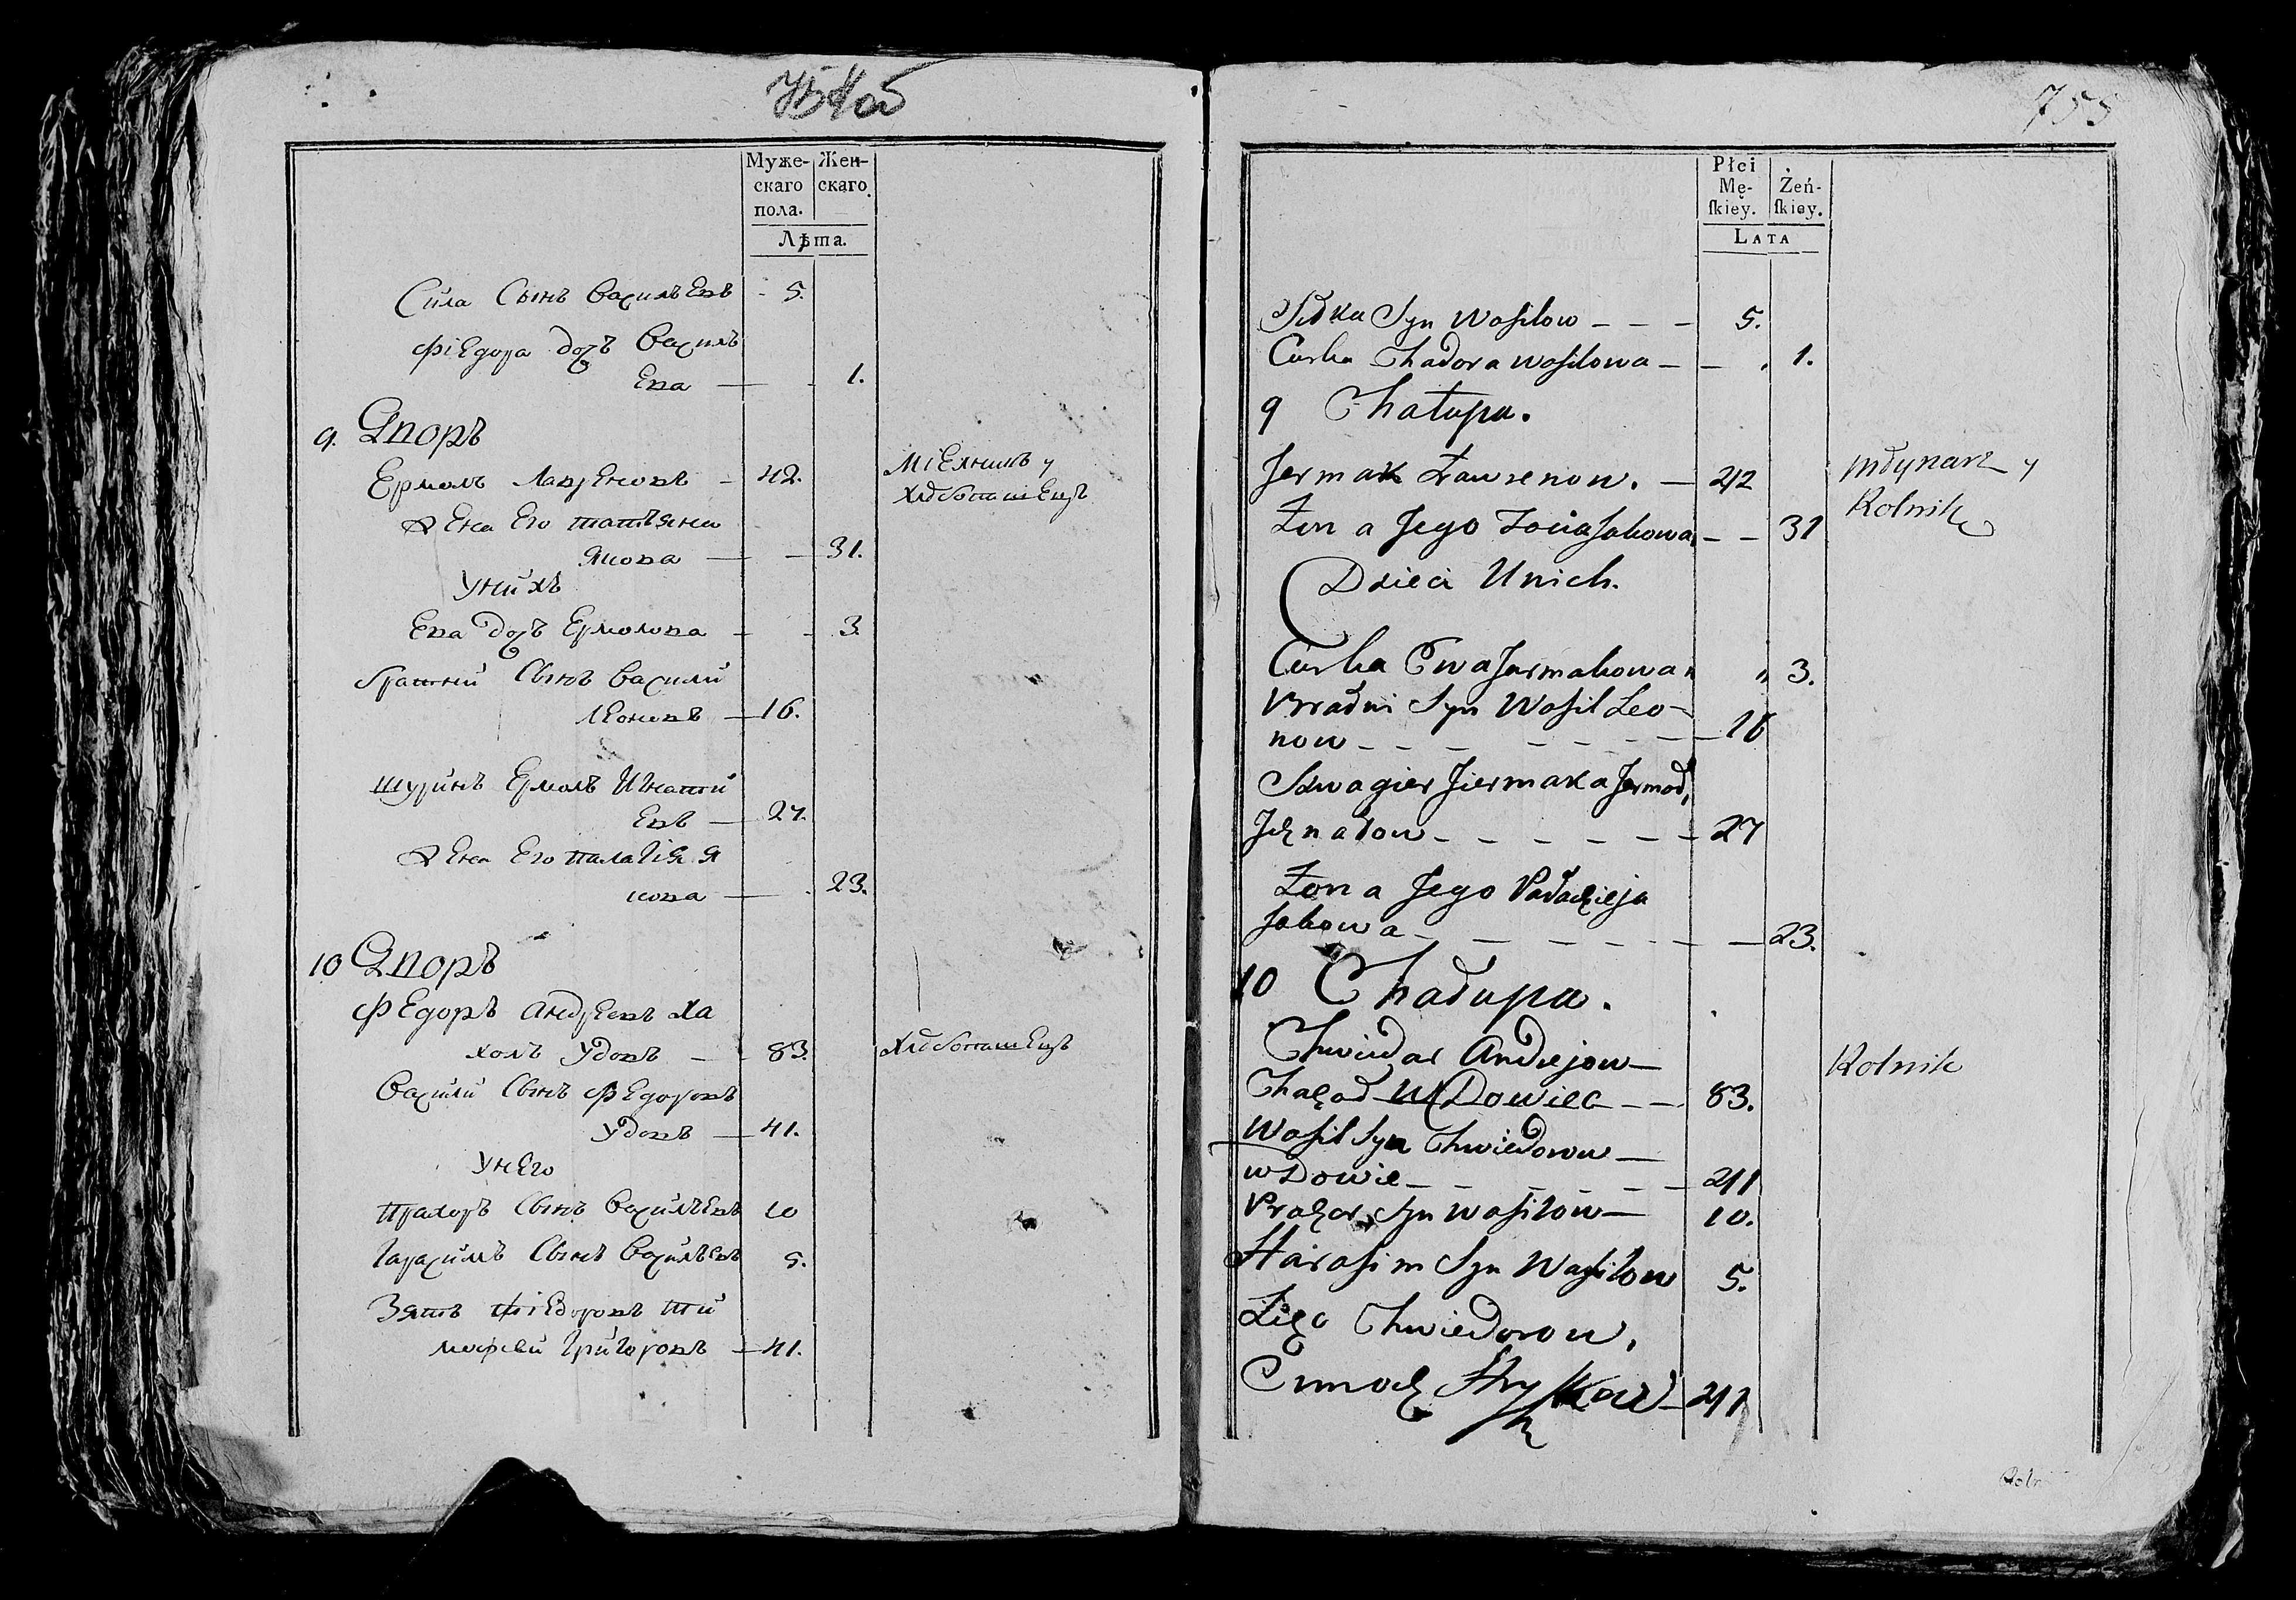 Муже- Жен-
скаго скаго.
пола.
Лѣта.
Сила Сынъ Василъевъ - 5.
Фіедора дочъ Василъ
ева — 1.
9. Дворъ
Ермолъ Лавреновъ - 42. Міелникъ у
Хлѣбопашецъ
Жена Его татъяна
Якова — 31.
Унйхъ
Ева дочъ Ермолова - 3.
братнй Сынъ Васили
Леоновъ — 16.
шуринъ Ермолъ Игнати
евъ — 27.
Жена Его палагія я
кова — 23.
10 Дворъ
Федоръ Андреевъ Ха
холъ Удовъ — 83. Хлѣбопашецъ
Васили Сынъ Федоровъ
Удовъ — 41.
Унего
прахоръ Сынъ Василъевъ 10
Гарасимъ Сынъ Василъевъ 5.
Зять Фіедоровъ ти
мофеи Григоровъ — 41.
755
Płci
Mę- Żeń-
skiey. skiey.
LATA
Syn Wasilow - - - 5.
Curka Chadora Wasilowa - - 1.
9 Chałupa.
Jermak Ławrenow. - 42 młynarz y
Rolnik
Żona Jego Jakowa - - 31
Dzieci Unich.
Curka Ewa Jarmakowa 3.
Bradni Syn Wasil Leo-
now - - - - - - 16
Szwagier Jiermaka Jermoł
Ihnatow - - - - - - 27
Żona Jego Pałachieja
Jakowa - - - - - - 23.
10 Chałupa.
Chwiedar Andrejow —
Chachoł Wdowiec - - 83. Rolnik
Wasil Syn Chwiedorow —
wDowie - - - - - - 41
Prachor Syn Wasilow — 10.
Harasim Syn Wasilow 5.
Zięć Chwiedorow,
Cimoch - 41